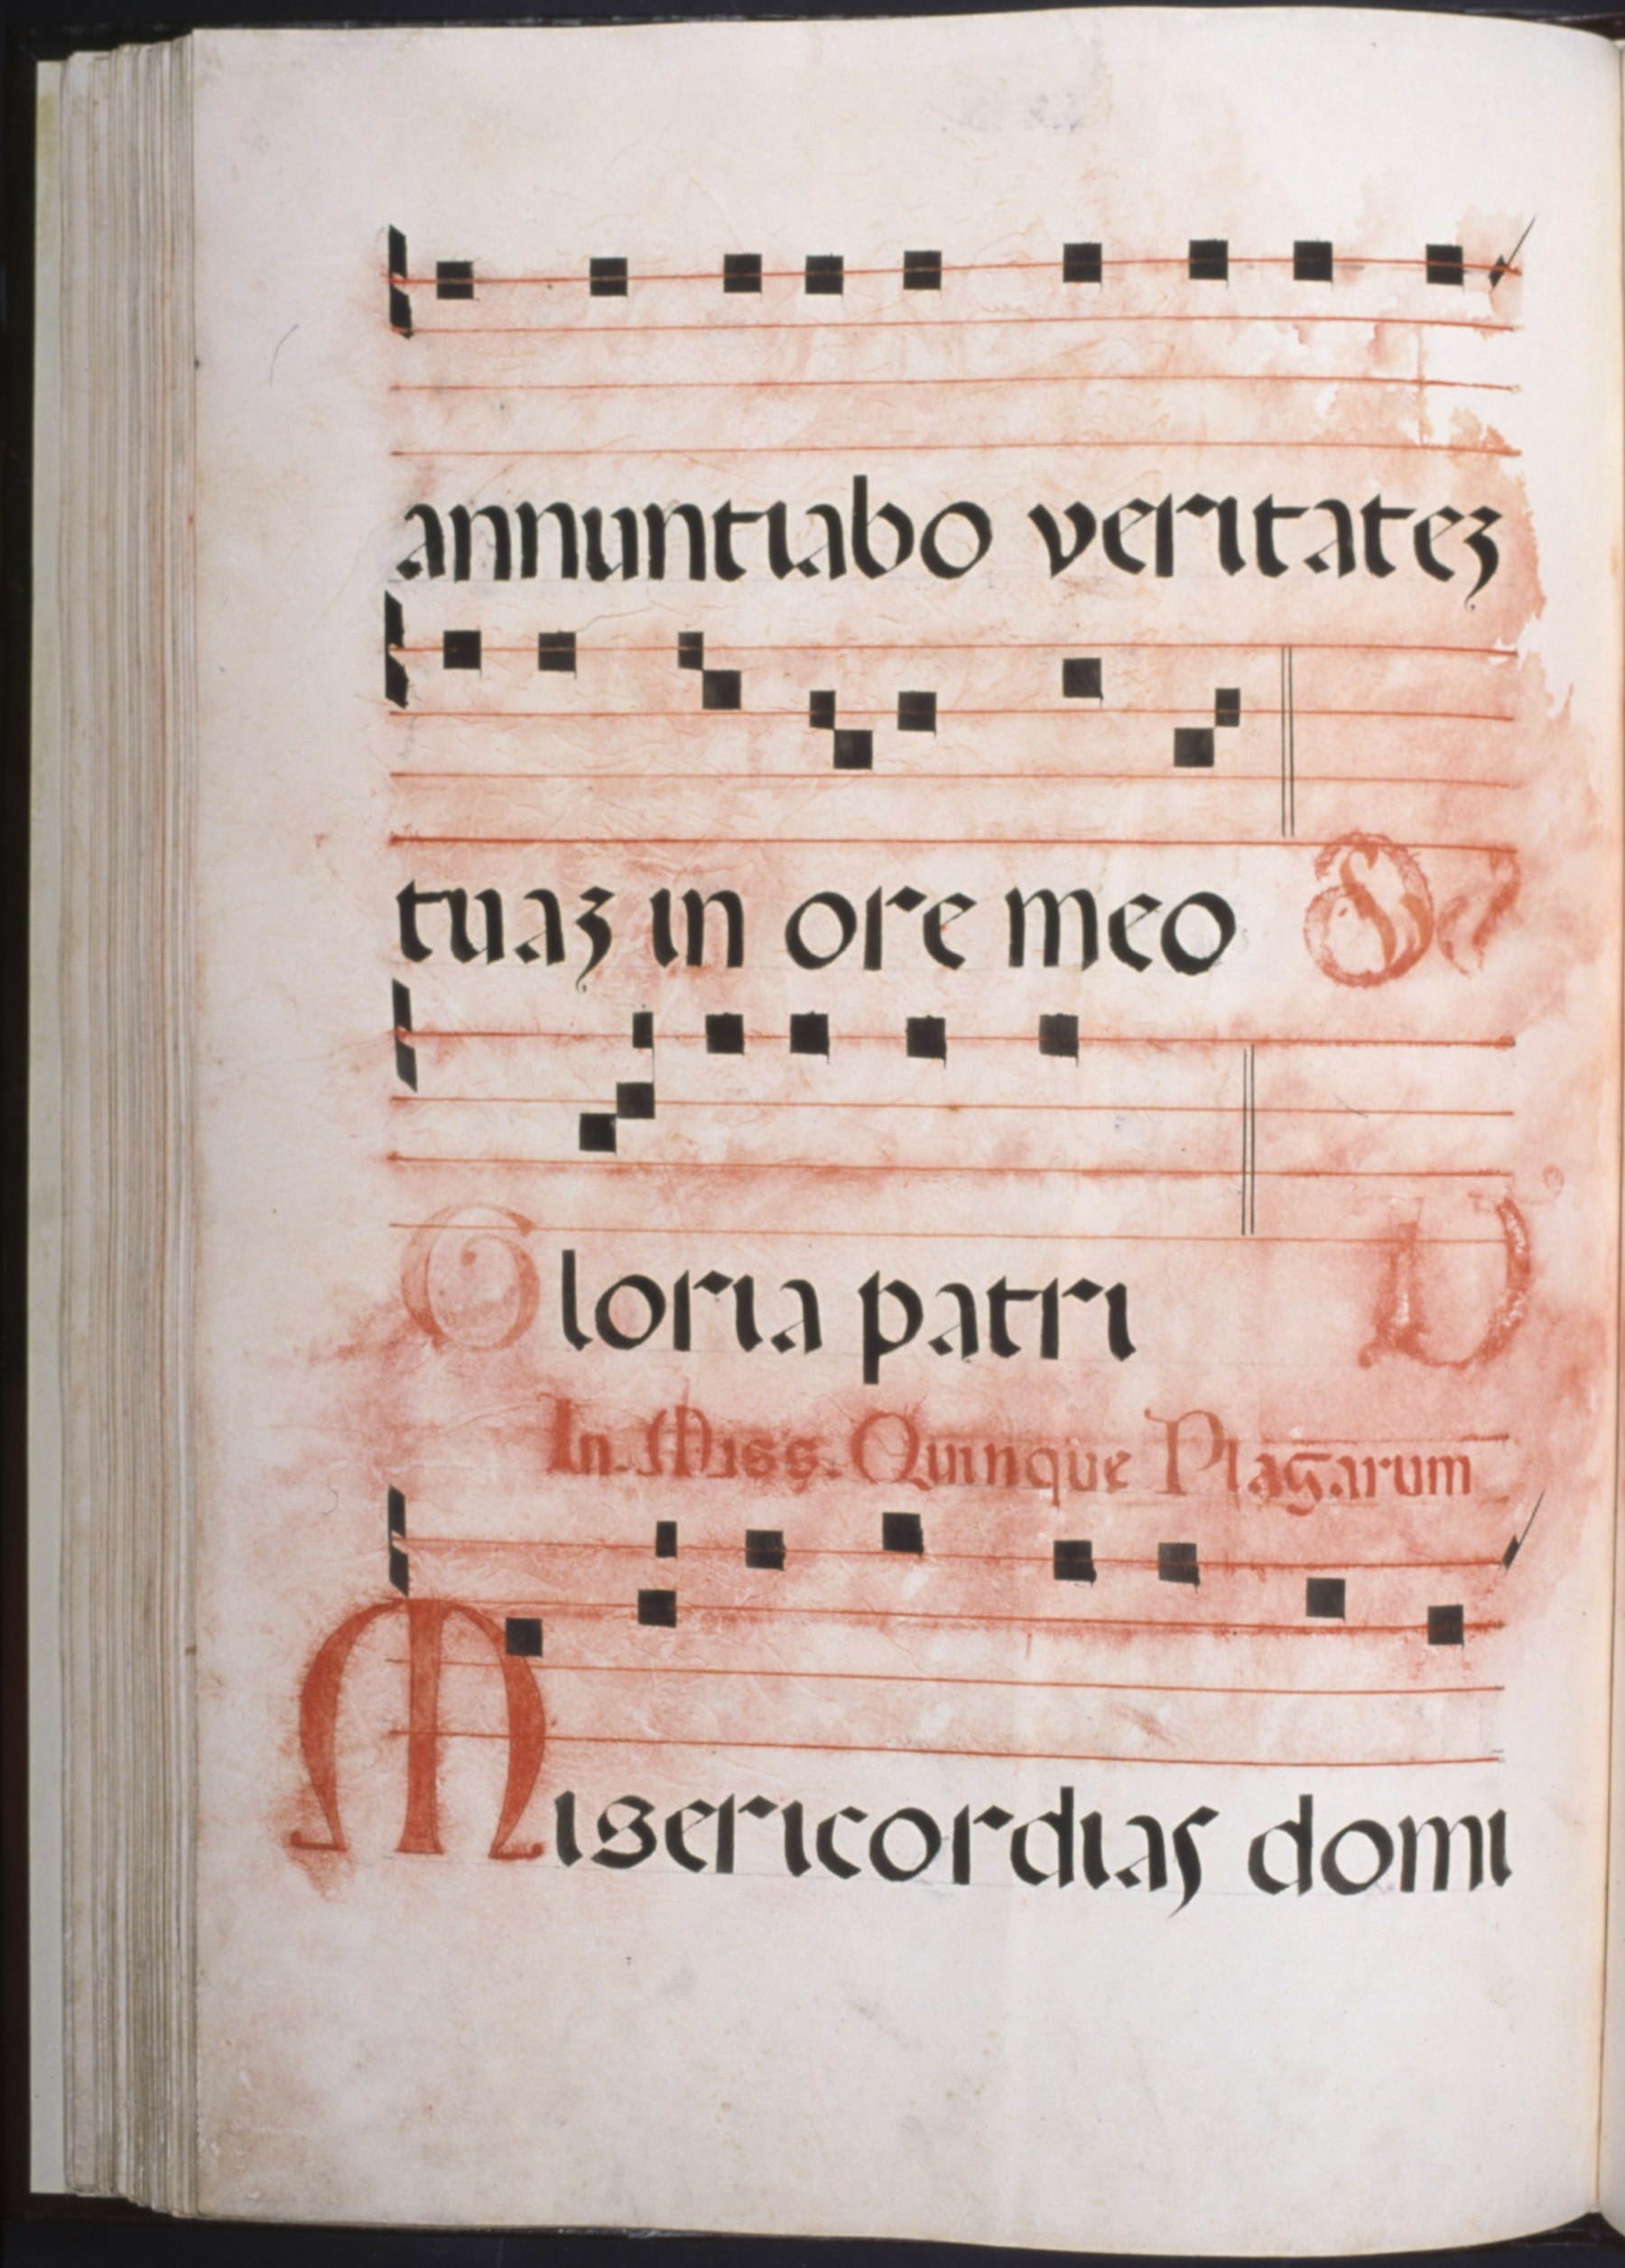 annuntiabo veritatez
tuaz in ore meo
Gloria patri V
In. Miss. Quinque Plagarum
Misericordias domi